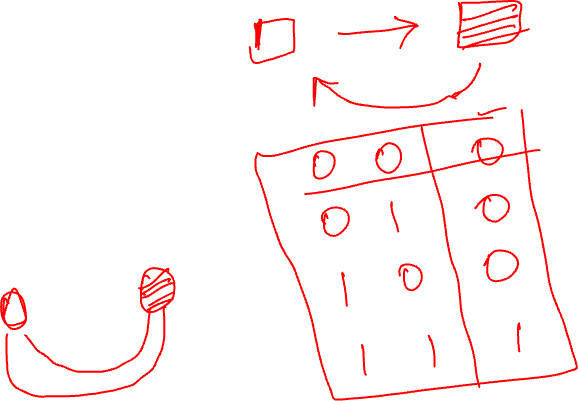 0 0 0
0 1 0
1 0 0
1 1 1